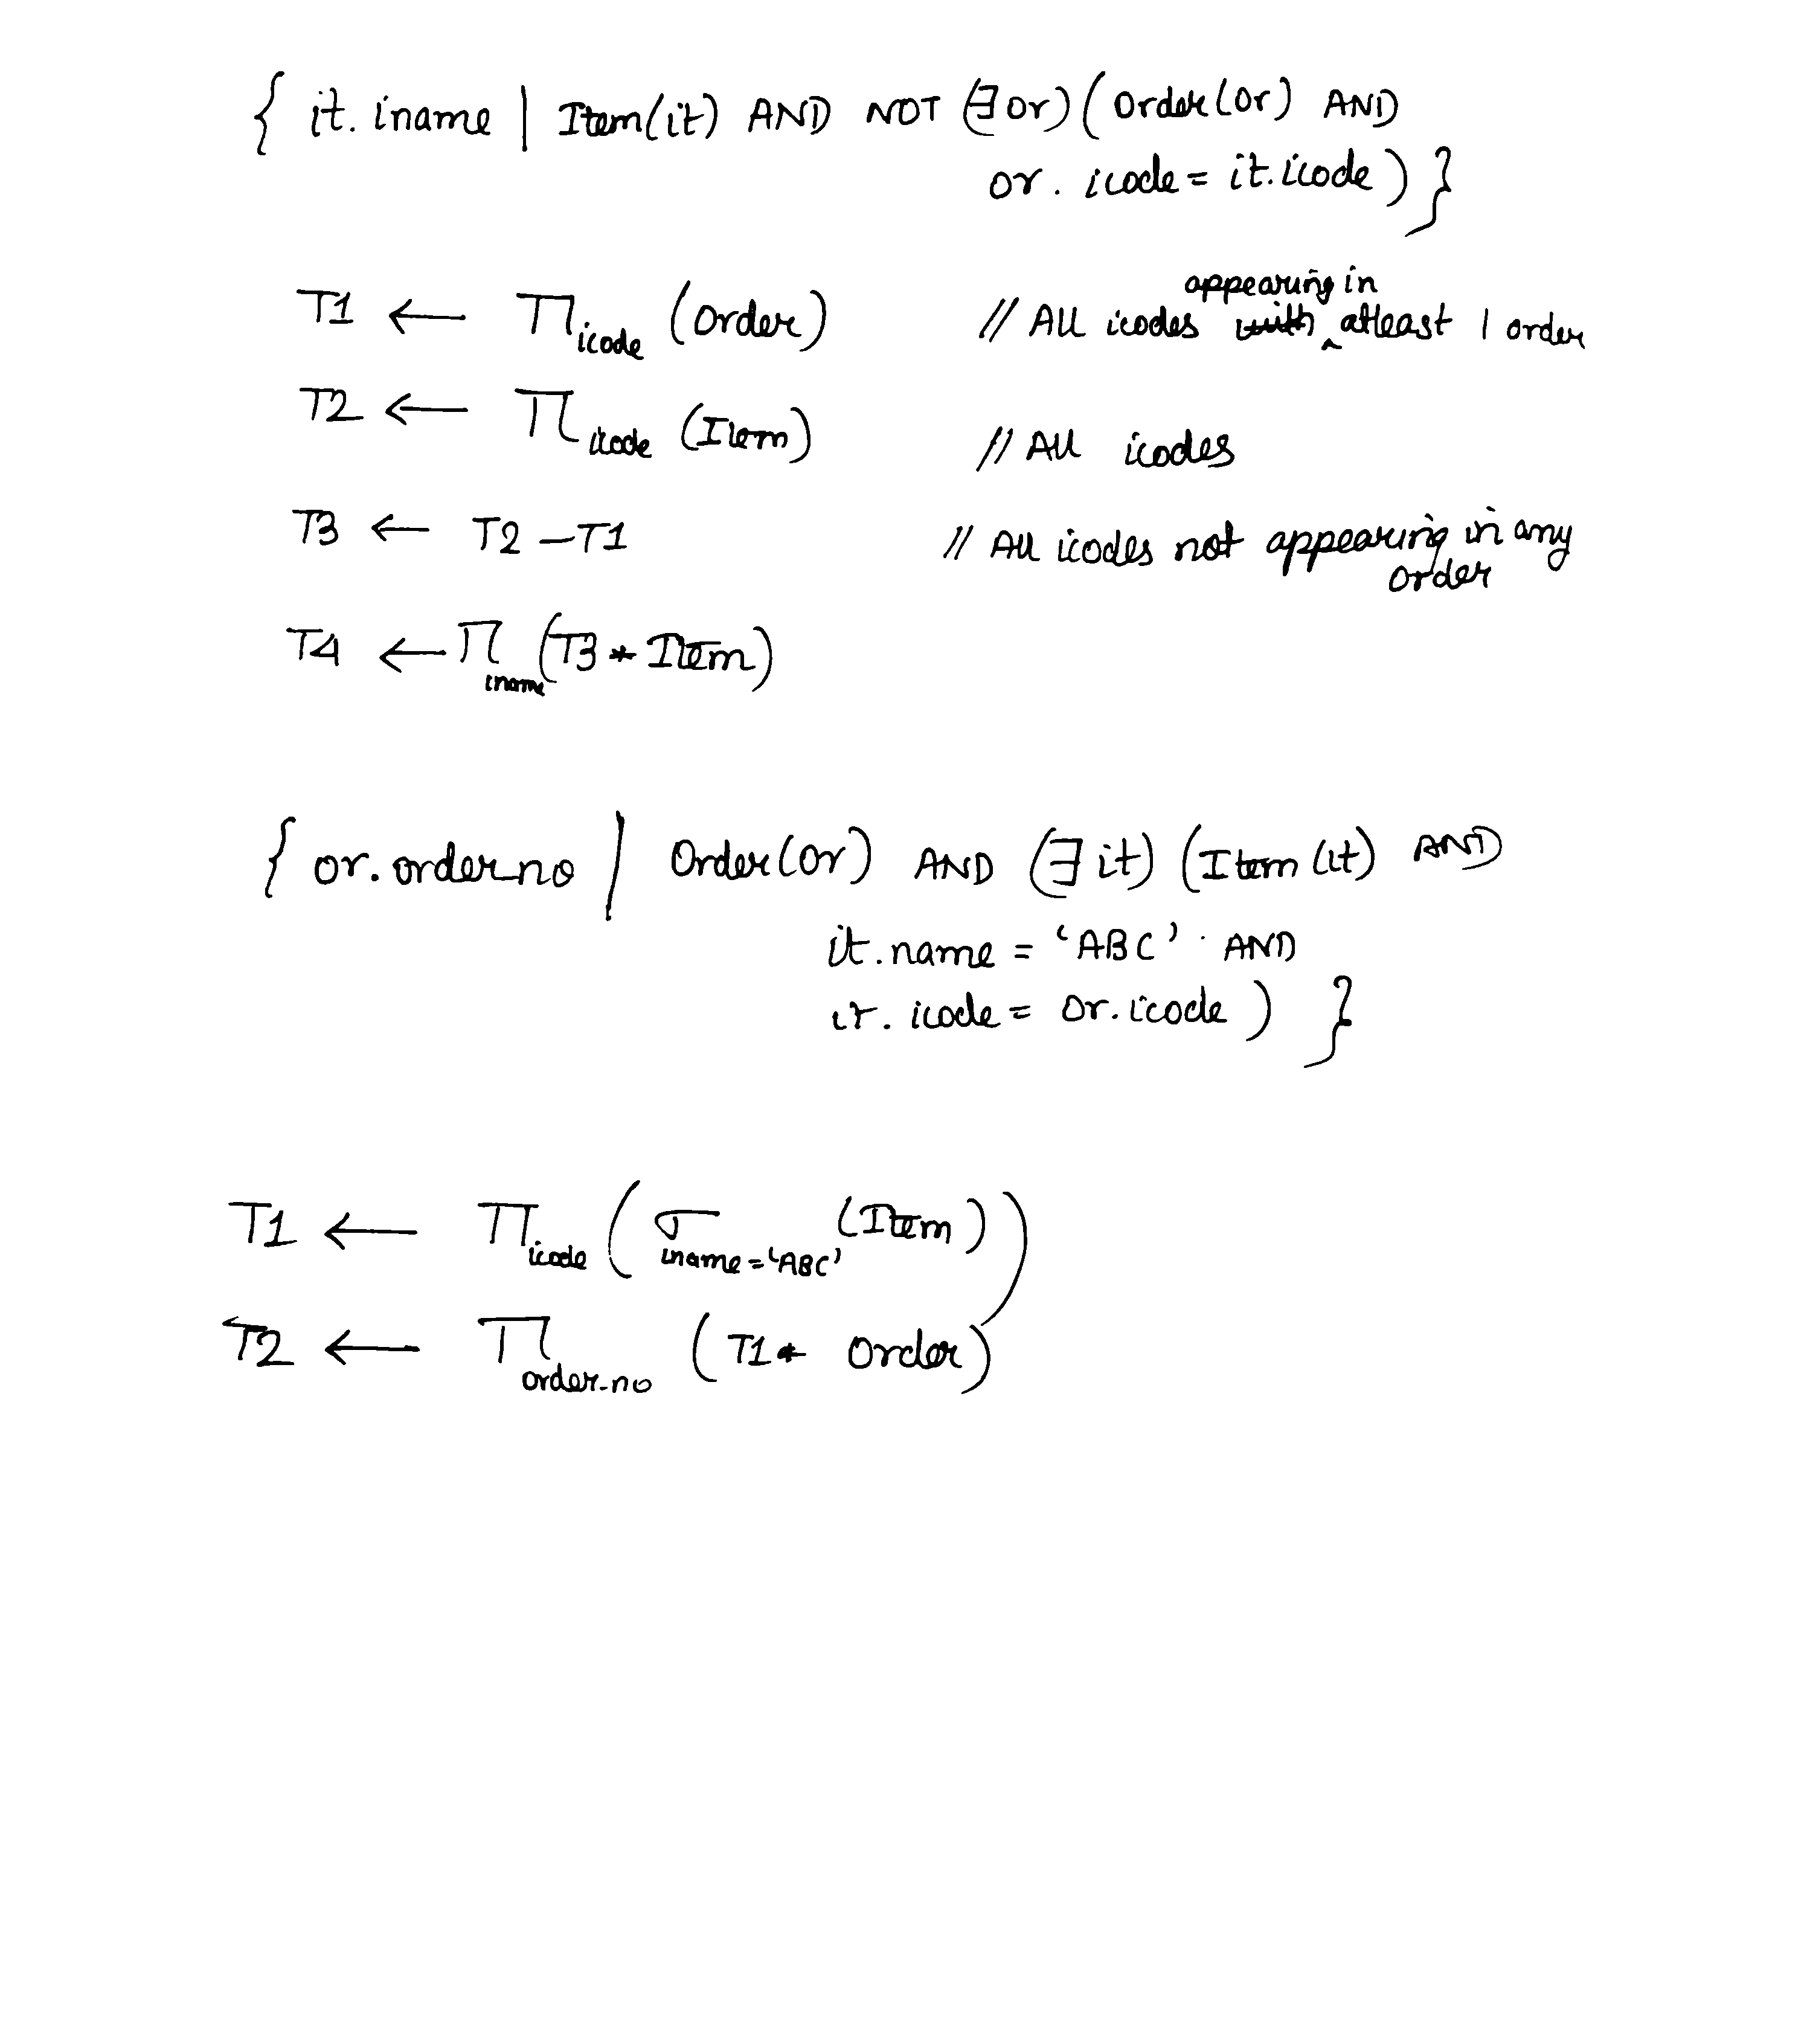 { it. iname | Item(it) AND NOT (∃ or) ( Order(or) AND
or. icode = it.icode ) }
T1 ← π icode (Order) // All icodes with appearing in atleast 1 order
T2 ← π icode (Item) // All icodes
T3 ← T2 – T1 // All icodes not appearing in any
order
T4 ← π iname (T3 * Item)
{ or. order_no | Order(or) AND (∃ it) (Item (it) AND
it.name = 'ABC' AND
it. icode = or.icode ) }
T1 ← π icode ( σ iname = 'ABC' (Item) )
T2 ← π order_no (T1 * Order)